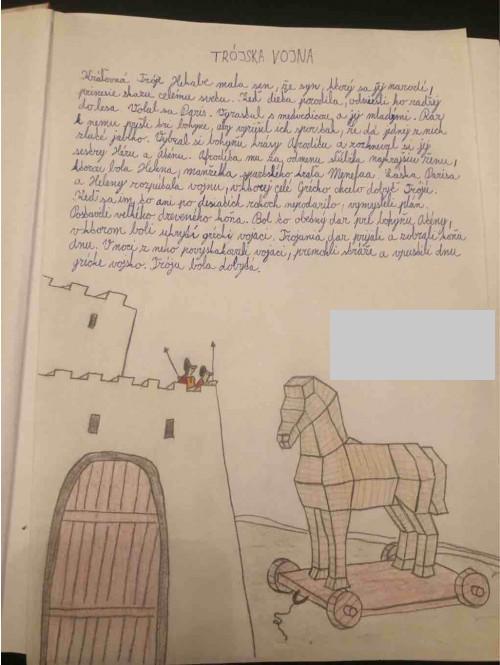 TRÓJSKA VOJNA
Kráľovná Tróje Hekabe mala sen, že syn, ktorý sa jej narodí,
prinesie skazu celému svetu. Keď dieťa porodila, odniesli ho radšej
do lesa. Volal sa Paris. Vyrastal s medvedicou a jej mláďatmi. Raz
k nemu prišli tri bohyne, aby vyriešil ich spor tak, že dá jednej z nich
zlaté jablko. Vybral si bohyňu krásy Afroditu a rozhneval si jej
sestry Héru a Aténu. Afrodita mu za odmenu sľúbila najkrajšiu ženu,
ktorou bola Helena, manželka spartského kráľa Menelaa. Láska Parisa
a Heleny rozpútala vojnu, v ktorej celé Grécko chcelo dobyť Tróju.
Keď sa im to ani po desiatich rokoch nepodarilo, vymysleli plán.
Postavili veľkého dreveného koňa. Bol to obetný dar pre bohyňu Aténu,
v ktorom boli ukrytí grécki vojaci. Trójania dar prijali a zobrali koňa
dnu. V noci z neho povyskakovali vojaci, premohli stráže a vpustili dnu
grécke vojsko. Trója bola dobytá.